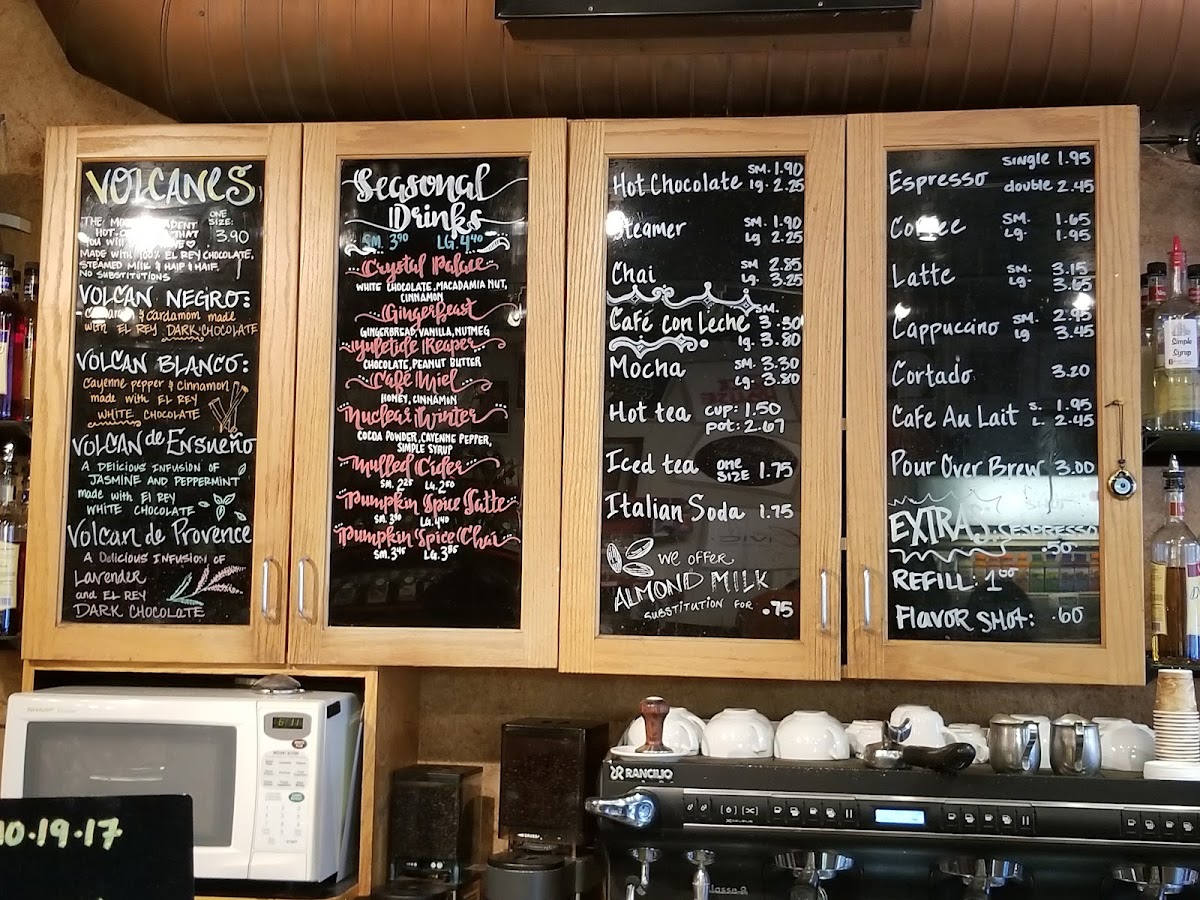 VOLCANES
THE MOST
HOT
YOU WILL
ONE
SIZE:
3.90
MADE WITH 100% EL REY CHOCOLATE,
STEAMED MILK & HALF & HALF.
NO SUBSTITUTIONS
VOLCAN NEGRO:
& Cardamom made
with EL REY DARK CHOCOLATE
VOLCAN BLANCO:
Cayenne pepper & Cinnamon
made with EL REY
WHITE CHOCOLATE
VOLCAN de ENSUEÑO
A DELICIOUS INFUSION OF
JASMINE AND PEPPERMINT
made with El REY
WHITE CHOCOLATE
Volcan de Provence
A Delicious INFUSION OF
Lavender
and EL REY
DARK CHOCOLATE
Seasonal
Drinks
SM. 3.90 LG. 4.40
Crystal Palace
WHITE CHOCOLATE, MACADAMIA NUT,
CINNAMON
Gingerbeast
GINGERBREAD, VANILLA, NUTMEG
Yuletide Reaper
CHOCOLATE, PEANUT BUTTER
Café Miel
HONEY, CINNAMON
Nuclear Winter
COCOA POWDER, CAYENNE PEPPER,
SIMPLE SYRUP
Mulled Cider
SM. 2.25 LG. 2.50
Pumpkin Spice Latte
SM. 3.90 LG. 4.40
Pumpkin Spice Chai
SM. 3.45 LG. 3.85
Hot Chocolate SM. 1.90
lg. 2.25
Steamer SM. 1.90
Lg 2.25
Chai SM 2.85
Lg. 3.25
Café con Leche SM. 3.30
lg. 3.80
Mocha SM. 3.30
Lg. 3.80
Hot tea cup: 1.50
pot: 2.67
Iced tea ONE SIZE 1.75
Italian Soda 1.75
WE OFFER
ALMOND MILK
SUBSTITUTION FOR .75
Espresso single 1.95
double 2.45
Coffee SM. 1.65
Lg. 1.95
Latte SM. 3.15
Lg. 3.65
Cappuccino SM. 2.95
lg 3.45
Cortado 3.20
Cafe Au Lait S. 1.95
L. 2.45
Pour Over Brew 3.00
EXTRAS: ESPRESSO
.50
REFILL: 1.00
FLAVOR SHOT: .60
Simple
Syrup
SHARP
6:11
10.19.17
RANCILIO
Classe 9